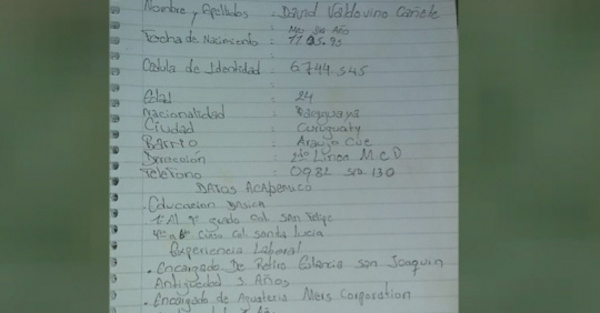 Nombre y Apellidos : David Valdovino Cañete
Mes Dia Año
Fecha de Nacimiento : 11.05.95
Cedula de Identidad : 6.744.545
Edad : 24
Nacionalidad : Paraguaya
Ciudad : Curuguaty
Barrio : Araujo Cue
Dirección : Linea M.C.D
Telefono : 0982 512.130
DATOS ACADEMICO
. Educacion Basica
1º Al 9º grado Col. San Felipe
curso Col. Santa Lucia
Experiencia Laboral
. Encargado De Retiro Estancia San Joaquin
Antiguedad 3 Años
. Encargado de Aguateria Mers Corporation